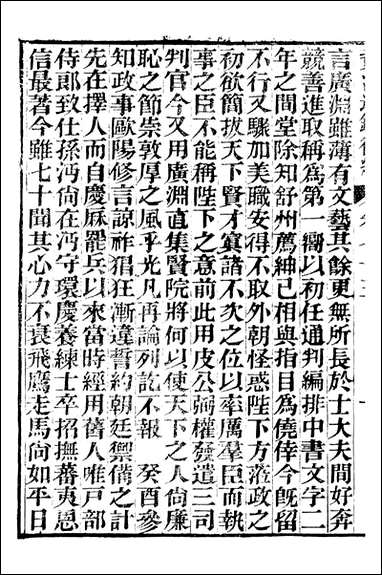 言廣淵雖薄有文藝其餘更無所長於士大夫間好奔
競善進取稱爲第一曏以初任通判編排中書文字二
年之間堂除知舒州薦紳已相與指目爲僥倖今旣留
不行又驟加美職安得不取外朝怪惑陛下方蒞政之
初欲簡拔天下賢才寘諸不次之位以率厲羣臣而執
事之臣不能稱陛下之意前此用皮公弼權發遣三司
判官今又用廣淵直集賢院將何以使天下之人尙廉
恥之節崇敦厚之風乎光凡再論列訖不報　癸酉參
知政事歐陽修言諒祚猖狂漸違誓約朝廷禦備之計
先在擇人而自慶厤罷兵以來當時經用舊人唯戸部
侍郎致仕孫沔尙在沔守環慶養練士卒招撫蕃夷恩
信最著今雖七十聞其心力不衰飛鷹走馬尙如平日